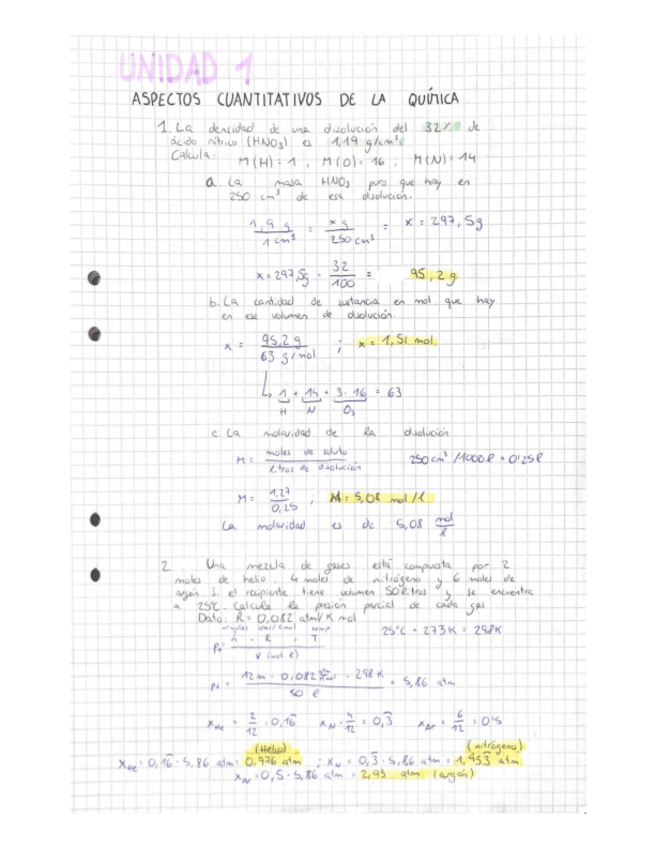 UNIDAD 1
ASPECTOS CUANTITATIVOS DE LA QUÍMICA
1. La densidad de una disolución del 32% de
ácido nítrico (HNO₃) es 1,19 g/cm³.
Calcula: M(H)=1 , M(O)=16 , M(N)=14
a. La masa HNO₃ puro que hay en
250 cm³ de esa disolución.
1,19 g / 1 cm³ = x g / 250 cm³ = x = 297,5g
x = 297,5g · 32/100 = 95,2 g
b. La cantidad de sustancia en mol que hay
en ese volumen de disolución.
x = 95,2 g / 63 g/mol ; x = 1,51 mol.
1 + 14 + 3·16 = 63
H N O₃
c. La molaridad de la disolución
M = moles de soluto / litros de disolución 250 cm³ /1000 l = 0'25 l
M = 1,27 / 0,25 ; M = 5,08 mol/l
La molaridad es de 5,08 mol/l
2. Una mezcla de gases está compuesta por 2
moles de helio, 4 moles de nitrógeno y 6 moles de
argón. Si el recipiente tiene volumen 50 litros y se encuentra
a 25ºC. Calcula la presión parcial de cada gas
Dato: R = 0,082 atm/K mol
n · R · T 25°C + 273K = 298K
Pt = V (vol l)
Pt = 12m · 0,082 · 298 K / 50 l = 5,86 atm
xHe = 2/12 = 0,16 xN = 4/12 = 0,3 xAr = 6/12 = 0'5
(Helio) (nitrógeno)
xHe = 0,16 · 5,86 atm = 0,976 atm ; xN = 0,3 · 5,86 atm = 1,953 atm
xAr = 0,5 · 5,86 atm = 2,93 atm (argón)